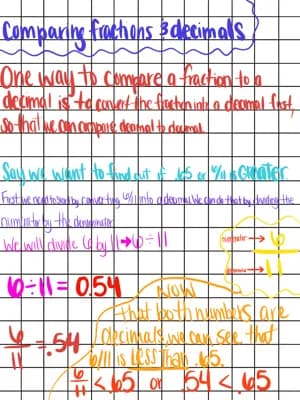 Comparing fractions & decimals
One way to compare a fraction to a
decimal is to convert the fraction into a decimal first,
so that we can compare decimal to decimal.
Say we want to find out if .65 or 6/11 is Greater
First we need to start by converting 6/11 into a decimal. We can do that by dividing the
numerator by the denominator
We will divide 6 by 11 → 6÷11
numerator → 6
denominator → 11
6÷11 = 0.54
6/11 = .54
Now
that both numbers are
decimals, we can see that
6/11 is Less than .65.
6/11 < .65 or .54 < .65